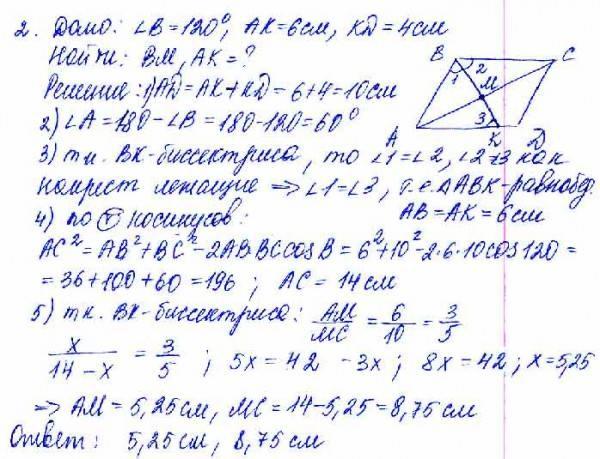 2. Дано: ∠B=120°, AK=6см, KD=4см
Найти: BM, AK=?
Решение: 1) AD=AK+KD=6+4=10см
2) ∠A=180-∠B=180-120=60°
3) т.к. BK-биссектриса, то ∠1=∠2, ∠2=∠3 как
накрест лежащие => ∠1=∠3, т.е. ΔABK-равнобед.
AB=AK=6см
4) по Ⓣ косинусов:
AC²=AB²+BC²-2AB·BC cosB=6²+10²-2·6·10cos120=
=36+100+60=196; AC=14см
5) т.к. BK-биссектриса: AM/MC = 6/10 = 3/5
x/(14-x) = 3/5; 5x=42-3x; 8x=42; x=5,25
=> AM=5,25см, MC=14-5,25=8,75см
Ответ: 5,25см, 8,75см
B
2
C
1
M
3
A
K
D